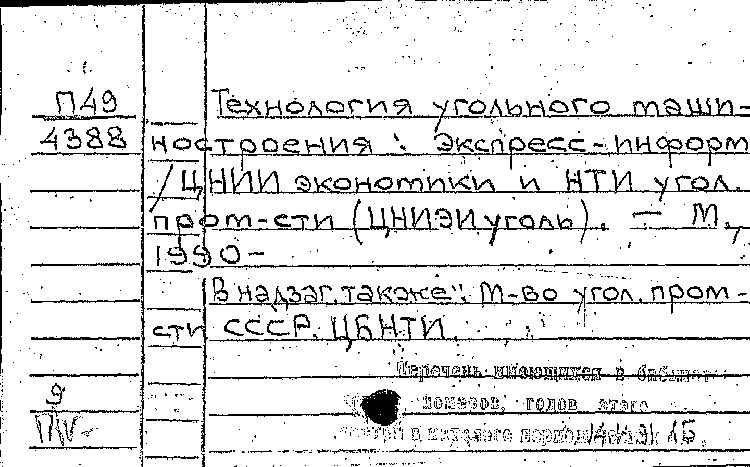 П49
4388
Технология угольного маши-
ностроения : Экспресс-информ
/ ЦНИИ экономики и НТИ угол.
пром-сти (ЦНИЭИуголь). — М.,
1990-
В надзаг. также: М-во угол. пром-
сти СССР. ЦБНТИ.
Перечень имеющихся в
номеров, годов этого
9